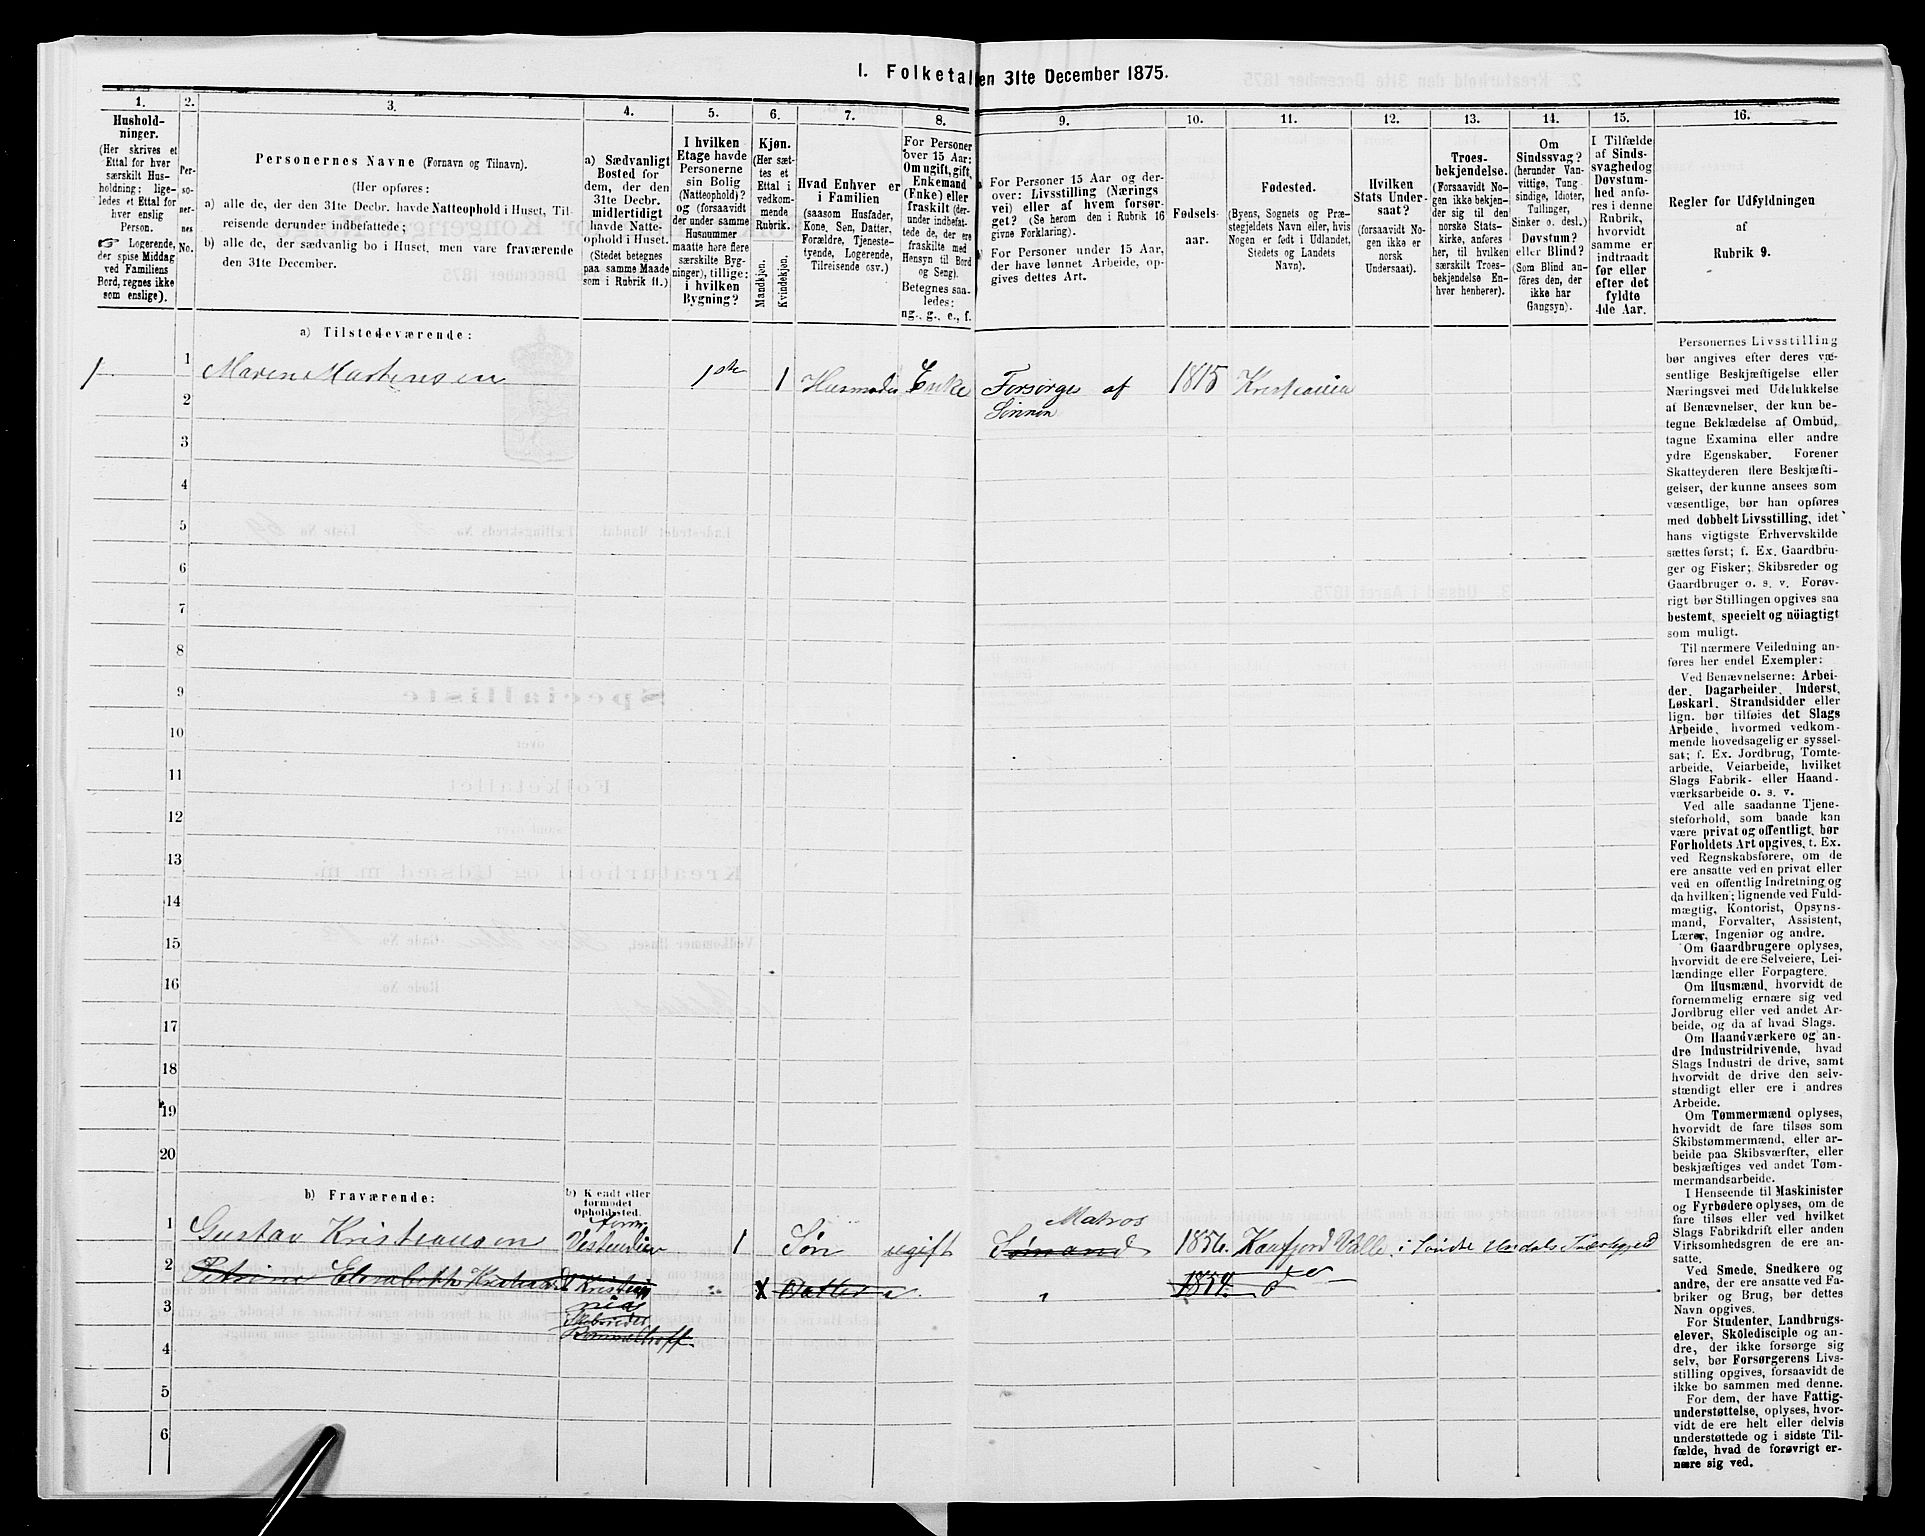 I. Folketal den 31te December 1875.
1. 2. 3. 4. 5. 6. 7. 8. 9. 10. 11. 12. 13. 14. 15. 16.
Hushold-
ninger.
(Her skrives et
Ettal for hver
særskilt Hus-
holdning; lige-
ledes et Ettal for
hver enslig
Person.
☞ Logerende,
der spise Middag
ved Familiens
Bord, regnes ikke
som enslige).
Per-
so-
ner-
nes
No.
Personernes Navne (Fornavn og Tilnavn).
(Her opføres:
a) alle de, der den 31te Decbr. havde Natteophold i Huset, Til-
reisende derunder indbefattede;
b) alle de, der sædvanlig bo i Huset, men vare fraværende
den 31te December.
a) Sædvanligt
Bosted for
dem, der den
31te Decbr.
midlertidigt
havde Natte-
ophold i Huset.
(Stedet betegnes
paa samme Maade
som i Rubrik 11.)
I hvilken
Etage havde
Personerne
sin Bolig
(Natteophold)?
og (forsaavidt
der under samme
Husnummer
maatte høre flere
særskilte Byg-
ninger), tillige:
i hvilken
Bygning?
Kjøn.
(Her sæt-
tes et
Ettal i
vedkom-
mende
Rubrik.
Mandkjøn.
Kvindekjøn.
Hvad Enhver er
i Familien
(saasom Husfader,
Kone, Søn, Datter,
Forældre, Tjeneste-
tyende, Logerende,
Tilreisende osv.)
For Personer
over 15 Aar:
Om ugift, gift,
Enkemand
(Enke) eller
fraskilt (der-
under indbefat-
tede de, der ere
fraskilte med
Hensyn til Bord
og Seng).
Betegnes saa-
ledes:
ug., g., e., f.
For Personer 15 Aar og der-
over: Livsstilling (Nærings
vei) eller af hvem forsør-
get? (Se herom den i Rubrik 16
givne Forklaring).
For Personer under 15 Aar,
der have lønnet Arbeide, op-
gives dettes Art.
Fødsels-
aar.
Fødested.
(Byens, Sognets og Præ-
stegjeldets Navn eller, hvis
Nogen er født i Udlandet,
Stedets og Landets
Navn).
Hvilken
Stats Under-
saat?
(forsaavidt No-
gen ikke er
norsk
Undersaat).
Troes-
bekjendelse.
(Forsaavidt No-
gen ikke bekjen-
der sig til den
norske Stats-
kirke, anføres
her, til hvilken
særskilt Troes-
bekjendelse En-
hver henhører).
Om
Sindssvag?
(herunder Van-
vittige, Tung-
sindige, Idioter,
Tullinger,
Sinker o. desl.)
Døvstum?
eller Blind?
(Som Blind an-
føres den, der
ikke har
Gangsyn).
I Tilfælde
af Sinds-
svaghed og
Døvstum-
hed anfø-
res i denne
Rubrik,
hvorvidt
samme er
indtraadt
før eller
efter det
fyldte
4de Aar.
Regler for Udfyldningen
af
Rubrik 9.
a) Tilstedeværende:
1 1 Maren Mortensen 1ste 1 Husmoder Enke Forsørges af 1815 Kristiania
Sønnen
2
3
4
5
6
7
8
9
10
11
12
13
14
15
16
17
18
19
20
b) Fraværende:
b) Kjendt eller
formodet
Opholdssted.
1 Gustav Kristiansen Form. Vestindien 1 Søn ugift Sømand Matros 1856 Kaafjord Valle i Søndre Undals Præstegjeld
2 Petrine Elisabeth Kristians Kristia- Datter 1854 do
nia
3 Skibsreder
Rommelhoff
4
5
6
Personernes Livsstilling
bør angives efter deres væ-
sentlige Beskjæftigelse eller
Næringsvei med Udelukkelse
af Benævnelser, der kun be-
tegne Beklædelse af Ombud,
tagne Examina eller andre
ydre Egenskaber. Forener
Skatteyderen flere Beskjæfti-
gelser, der kunne ansees som
væsentlige, bør han opføres
med dobbelt Livsstilling, idet
hans vigtigste Erhvervskilde
sættes først; f. Ex. Gaardbru-
ger og Fisker; Skibsreder og
Gaardbruger o. s. v. Forøv-
rigt bør Stillingen opgives saa
bestemt, specielt og nöiagtigt
som muligt.
Til nærmere Veiledning an-
føres her endel Exempler:
Ved Benævnelserne: Arbei-
der, Dagarbeider, Inderst,
Løskarl, Strandsidder eller
lign. bør tilføies det Slags
Arbeide, hvormed vedkom-
mende hovedsagelig er syssel-
sat; f. Ex. Jordbrug, Tomte-
arbeide, Veiarbeide, hvilket
Slags Fabrik- eller Haand-
værksarbeide o. s. v.
Ved alle saadanne Tjene-
steforhold, som baade kan
være privat og offentligt, bør
Forholdets Art opgives, t. Ex.
ved Regnskabsførere, om de
ere ansatte ved en privat eller
ved en offentlig Indretning og
da hvilken; lignende ved Fuld-
mægtig, Kontorist, Opsyns-
mand, Forvalter, Assistent,
Lærer, Ingeniør og andre.
Om Gaardbrugere oplyses,
hvorvidt de ere Selveiere, Lei-
lændinge eller Forpagtere.
Om Husmænd, hvorvidt de
fornemmelig ernære sig ved
Jordbrug eller ved andet Ar-
beide, og da af hvad Slags.
Om Haandværkere og an-
dre Industridrivende, hvad
Slags Industri de drive, samt
hvorvidt de drive den selv-
stændigt eller ere i andres
Arbeide.
Om Tømmermænd oplyses,
hvorvidt de fare tilsøs som
Skibstømmermænd, eller ar-
beide paa Skibsværfter, eller
beskjæftiges ved andet Tøm-
mermandsarbeide.
I Henseende til Maskinister
og Fyrbødere oplyses, om de
fare tilsøs eller ved hvilket
Slags Fabrikdrift eller anden
Virksomhedsgren de ere an-
satte.
Ved Smede, Snedkere og
andre, der ere ansatte ved Fa-
briker og Brug, bør dettes
Navn opgives.
For Studenter, Landbrugs-
elever, Skoledisciple og an-
dre, der ikke forsørge sig
selv, bør Forsørgerens Livs-
stilling opgives, forsaavidt de
ikke bo sammen med denne.
For dem, der have Fattig-
understøttelse, oplyses, hvor-
vidt de ere helt eller delvis
understøttede og i sidste Til-
fælde, hvad de forøvrigt er-
nære sig ved.